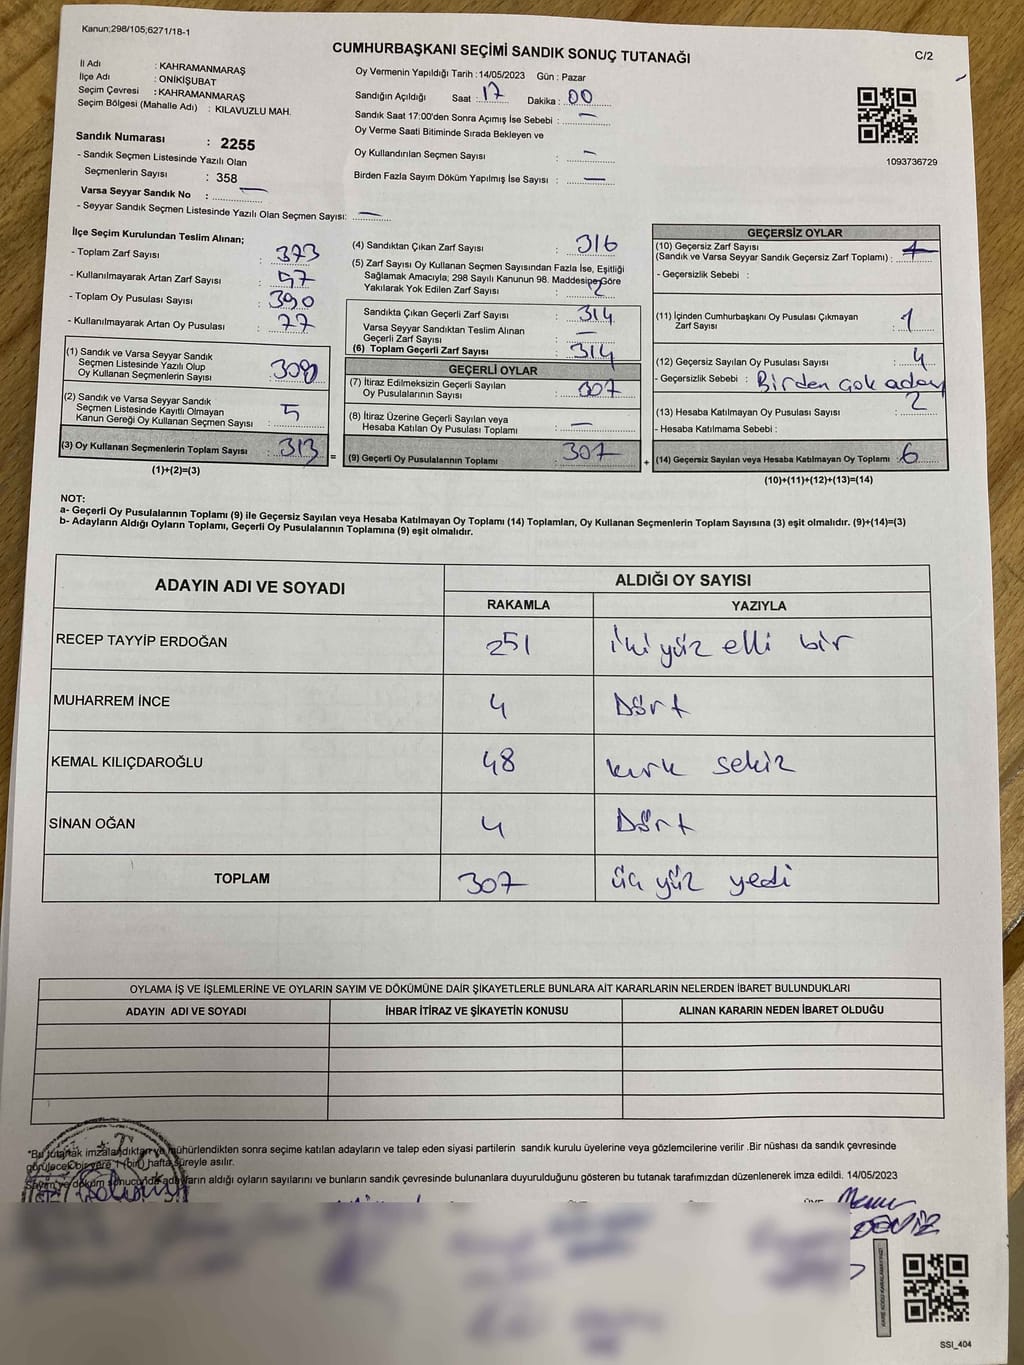 Kanun;298/105;6271/18-1
CUMHURBAŞKANI SEÇİMİ SANDIK SONUÇ TUTANAĞI
C/2
İl Adı : KAHRAMANMARAŞ
İlçe Adı : ONİKİŞUBAT
Seçim Çevresi : KAHRAMANMARAŞ
Seçim Bölgesi (Mahalle Adı) : KILAVUZLU MAH.
Sandık Numarası : 2255
- Sandık Seçmen Listesinde Yazılı Olan
Seçmenlerin Sayısı : 358
Varsa Seyyar Sandık No : —
- Seyyar Sandık Seçmen Listesinde Yazılı Olan Seçmen Sayısı: —
Oy Vermenin Yapıldığı Tarih : 14/05/2023 Gün : Pazar
Sandığın Açıldığı Saat : 17 Dakika : 00
Sandık Saat 17:00'den Sonra Açımış İse Sebebi : —
Oy Verme Saati Bitiminde Sırada Bekleyen ve
Oy Kullandırılan Seçmen Sayısı : —
Birden Fazla Sayım Döküm Yapılmış İse Sayısı : —
1093736729
İlçe Seçim Kurulundan Teslim Alınan;
- Toplam Zarf Sayısı : 373
- Kullanılmayarak Artan Zarf Sayısı : 57
- Toplam Oy Pusulası Sayısı : 390
- Kullanılmayarak Artan Oy Pusulası : 77
(1) Sandık ve Varsa Seyyar Sandık
Seçmen Listesinde Yazılı Olup
Oy Kullanan Seçmenlerin Sayısı : 308
(2) Sandık ve Varsa Seyyar Sandık
Seçmen Listesinde Kayıtlı Olmayan
Kanun Gereği Oy Kullanan Seçmen Sayısı : 5
(3) Oy Kullanan Seçmenlerin Toplam Sayısı : 313
(1)+(2)=(3)
(4) Sandıktan Çıkan Zarf Sayısı : 316
(5) Zarf Sayısı Oy Kullanan Seçmen Sayısından Fazla İse, Eşitliği
Sağlamak Amacıyla; 298 Sayılı Kanunun 98. Maddesine Göre
Yakılarak Yok Edilen Zarf Sayısı : 2
Sandıkta Çıkan Geçerli Zarf Sayısı : 314
Varsa Seyyar Sandıktan Teslim Alınan
Geçerli Zarf Sayısı : —
(6) Toplam Geçerli Zarf Sayısı : 314
GEÇERLİ OYLAR
(7) İtiraz Edilmeksizin Geçerli Sayılan
Oy Pusulalarının Sayısı : 307
(8) İtiraz Üzerine Geçerli Sayılan veya
Hesaba Katılan Oy Pusulası Toplamı : —
= (9) Geçerli Oy Pusulalarının Toplamı : 307
GEÇERSİZ OYLAR
(10) Geçersiz Zarf Sayısı
(Sandık ve Varsa Seyyar Sandık Geçersiz Zarf Toplamı) :
- Geçersizlik Sebebi :
(11) İçinden Cumhurbaşkanı Oy Pusulası Çıkmayan
Zarf Sayısı : 1
(12) Geçersiz Sayılan Oy Pusulası Sayısı : 4
- Geçersizlik Sebebi : Birden çok aday
(13) Hesaba Katılmayan Oy Pusulası Sayısı : 2
- Hesaba Katılmama Sebebi :
+ (14) Geçersiz Sayılan veya Hesaba Katılmayan Oy Toplamı : 6
(10)+(11)+(12)+(13)=(14)
NOT:
a- Geçerli Oy Pusulalarının Toplamı (9) ile Geçersiz Sayılan veya Hesaba Katılmayan Oy Toplamı (14) Toplamları, Oy Kullanan Seçmenlerin Toplam Sayısına (3) eşit olmalıdır. (9)+(14)=(3)
b- Adayların Aldığı Oyların Toplamı, Geçerli Oy Pusulalarının Toplamına (9) eşit olmalıdır.
ADAYIN ADI VE SOYADI
ALDIĞI OY SAYISI
RAKAMLA YAZIYLA
RECEP TAYYİP ERDOĞAN 251 iki yüz elli bir
MUHARREM İNCE 4 Dört
KEMAL KILIÇDAROĞLU 48 kırk sekiz
SİNAN OĞAN 4 Dört
TOPLAM 307 üç yüz yedi
OYLAMA İŞ VE İŞLEMLERİNE VE OYLARIN SAYIM VE DÖKÜMÜNE DAİR ŞİKAYETLERLE BUNLARA AİT KARARLARIN NELERDEN İBARET BULUNDUKLARI
ADAYIN ADI VE SOYADI İHBAR İTİRAZ VE ŞİKAYETİN KONUSU ALINAN KARARIN NEDEN İBARET OLDUĞU
*Bu tutanak imzalandıktan ve mühürlendikten sonra seçime katılan adayların ve talep eden siyasi partilerin sandık kurulu üyelerine veya gözlemcilerine verilir .Bir nüshası da sandık çevresinde
görülecek bir yere 1 (bir) hafta süreyle asılır.
Sayım ve döküm sonucunda adayların aldığı oyların sayılarını ve bunların sandık çevresinde bulunanlara duyurulduğunu gösteren bu tutanak tarafımızdan düzenlenerek imza edildi. 14/05/2023
DENİZ
KARE KODU KARALAMAYINIZ!
SSI_404